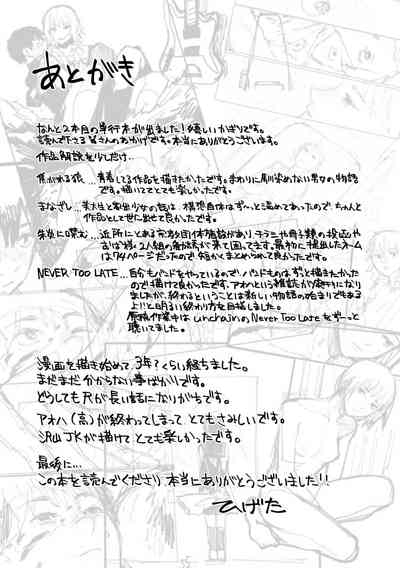 あとがき
なんと2本目の単行本が出ました!嬉しいかぎりです。
読んで下さる皆さんのおかげです。本当にありがとうございます。
作品解説を少しだけ…
焦がれる狼…青春してる作品を描きたかったです。まわりに馴染めない男女の物語
です。描いててとても楽しかったです。
まなざし…美大生と家出少女の話は、構想自体はず〜っと温めてあったので、ちゃんと
作品として世に出せて良かったです。
朱に噛む…近所にとある宗教団体施設があり、チラシや冊子類の投函や
おば様2人組の勧誘が来て困ってます。最初に提出したネーム
は74ページだったので、短かくまとめられて良かったです。
NEVER TOO LATE…自らもバンドをやっているので、バンドものはずっと描きたかった
ので描けて良かったです。アオハという雑誌が廃刊になり
ましたが、終わるということは新しい物語の始まりでもある
よ!!と明るい終わり方を目指しました。
原稿作業中はunchainのNever Too Lateをずーっと
聴いてました。
漫画を描き始めて3年?くらい経ちました。
まだまだ分からない事ばかりです。
どうしても尺が長い話になりがちです。
アオハ(高)が終わってしまってとてもさみしいです。
沢山JKが描けてとても楽しかったです。
最後に…
この本を読んでくださり本当にありがとうございました!!
ひげた